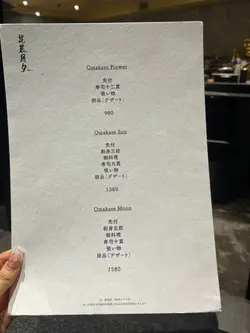 Omakase Flower
先付
寿司十二貫
吸い物
甜品(デザート)
980
Omakase Sun
先付
刺身三款
御料理
寿司九貫
吸い物
甜品(デザート)
1380
Omakase Moon
先付
刺身五款
御料理
寿司十貫
吸い物
甜品(デザート)
1580